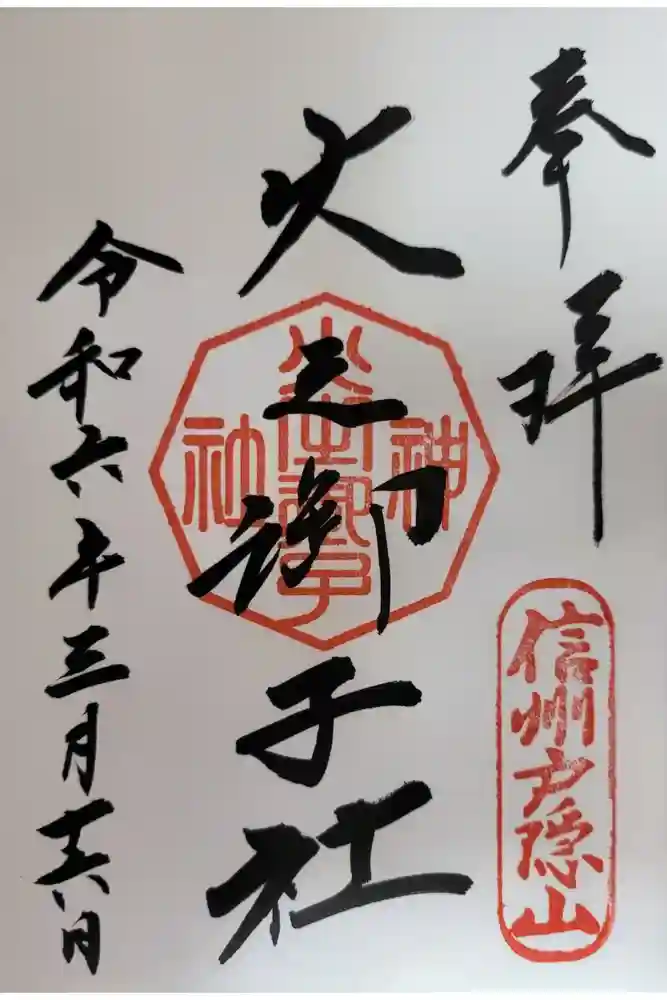 奉拝
信州戸隠山
火之御子社
火之御子
神社
令和六年三月十六日